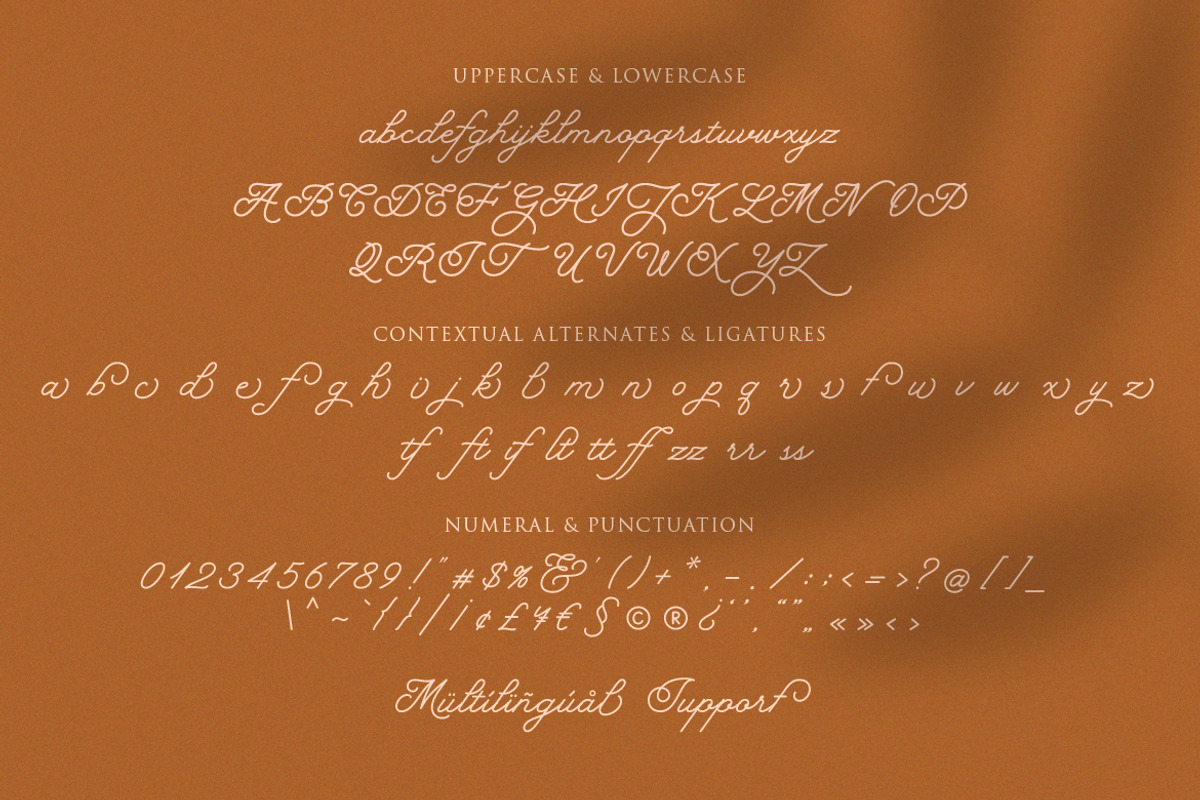 UPPERCASE & LOWERCASE
abcdefghijklmnopqrstuvwxyz
ABCDEFGHIJKLMNOP
QRSTUVWXYZ
CONTEXTUAL ALTERNATES & LIGATURES
a b c d e f g h i j k l m n o p q r s t u v w x y z
tf ft if lt tt ff zz rr ss
NUMERAL & PUNCTUATION
0123456789!"#$%&'()+*,-./:;<=>?@[]_
\^~`{}/¡¢£¥€§©®¿‘’‚“”„«»‹›
Mültílïñgúål Support